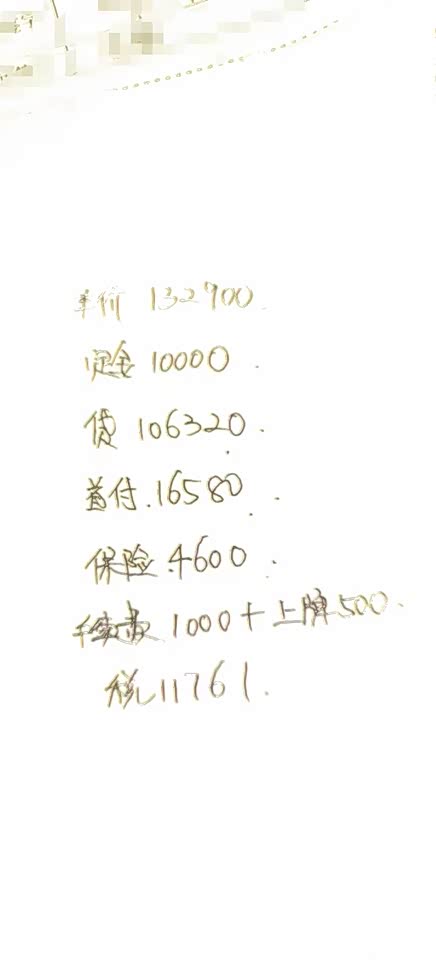 车价 132900.
定金 10000.
贷 106320.
首付.16580.
保险.4600.
手续费 1000+上牌500.
税11761.